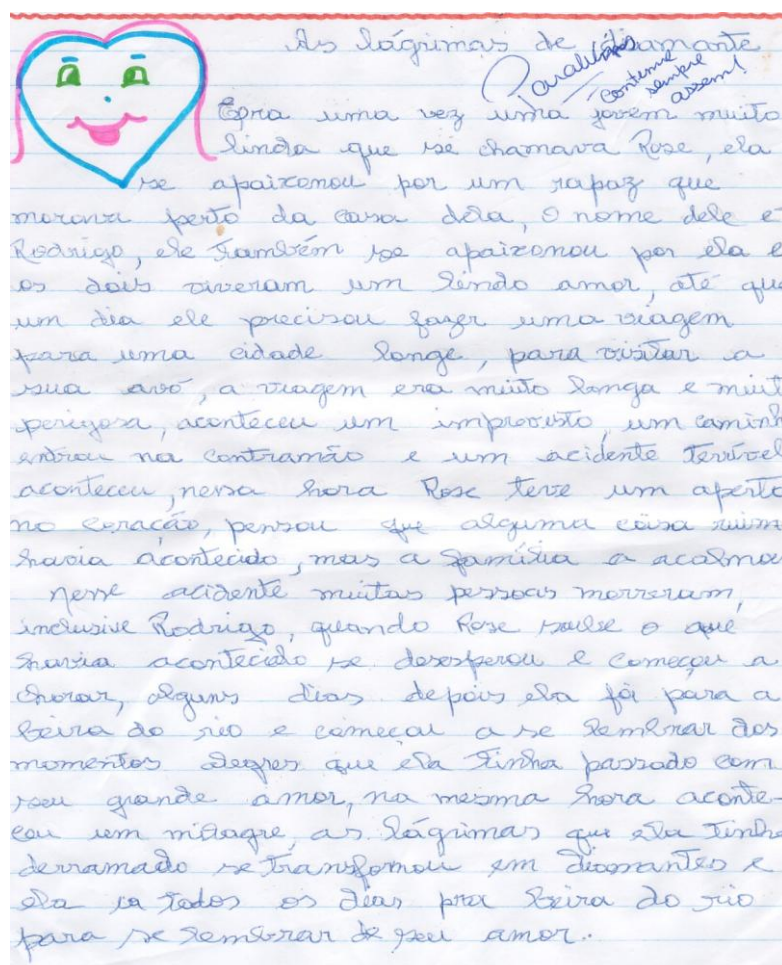 As lágrimas de diamante
Parabéns
continue
sempre
assim!
Era uma vez uma jovem muito
linda que se chamava Rose, ela
se apaixonou por um rapaz que
morava perto da casa dela, o nome dele e
Rodrigo, ele também se apaixonou por ela e
os dois viveram um lindo amor, até que
um dia ele precisou fazer uma viagem
para uma cidade longe, para visitar a
sua avó, a viagem era muito longa e muit
perigosa, aconteceu um improvisto, um caminh
entrou na contramão e um acidente terrível
aconteceu, nessa hora Rose teve um aperto
no coração, pensou que alguma coisa ruim
havia acontecido, mas a família a acalmou
nesse acidente muitas pessoas morreram,
inclusive Rodrigo, quando Rose soube o que
havia acontecido se desesperou e começou a
chorar, alguns dias depois ela foi para a
beira do rio e começou a se lembrar dos
momentos alegres que ela tinha passado com
seu grande amor, na mesma hora aconte-
ceu um milagre, as lágrimas que ela tinha
derramado se transfomou em diamantes e
ela ia todos os dias pra beira do rio
para se lembrar de seu amor.